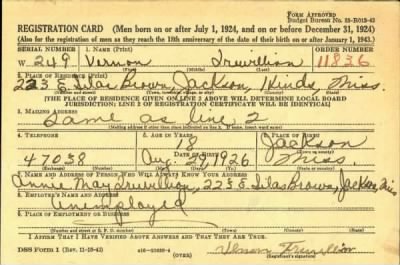 FORM APPROVED
Budget Bureau No. 33-R013-42
REGISTRATION CARD (Men born on or after July 1, 1924, and on or before December 31, 1924)
(Also for the registration of men as they reach the 18th anniversary of the date of their birth on or after January 1, 1943.)
SERIAL NUMBER 1. NAME (Print) ORDER NUMBER
W. 249 Vernon Truvillion 11836
2. PLACE OF RESIDENCE (Print)
223 E Silas Brown Jackson, Hinds, Miss.
[THE PLACE OF RESIDENCE GIVEN ON LINE 2 ABOVE WILL DETERMINE LOCAL BOARD
JURISDICTION; LINE 2 OF REGISTRATION CERTIFICATE WILL BE IDENTICAL]
3. MAILING ADDRESS
Same as line 2
4. TELEPHONE 5. AGE IN YEARS 6. PLACE OF BIRTH
18 Jackson
DATE OF BIRTH
47038 Aug. 1926 Miss.
7. NAME AND ADDRESS OF PERSON WHO WILL ALWAYS KNOW YOUR ADDRESS
Annie May Truvillion, 223 E. Silas Brown, Jackson, Miss
8. EMPLOYER'S NAME AND ADDRESS
Unemployed
9. PLACE OF EMPLOYMENT OR BUSINESS
I AFFIRM THAT I HAVE VERIFIED ABOVE ANSWERS AND THAT THEY ARE TRUE.
DSS Form 1 (Rev. 11-16-42) (OVER) Vernon Truvillion
(Registrant's signature)